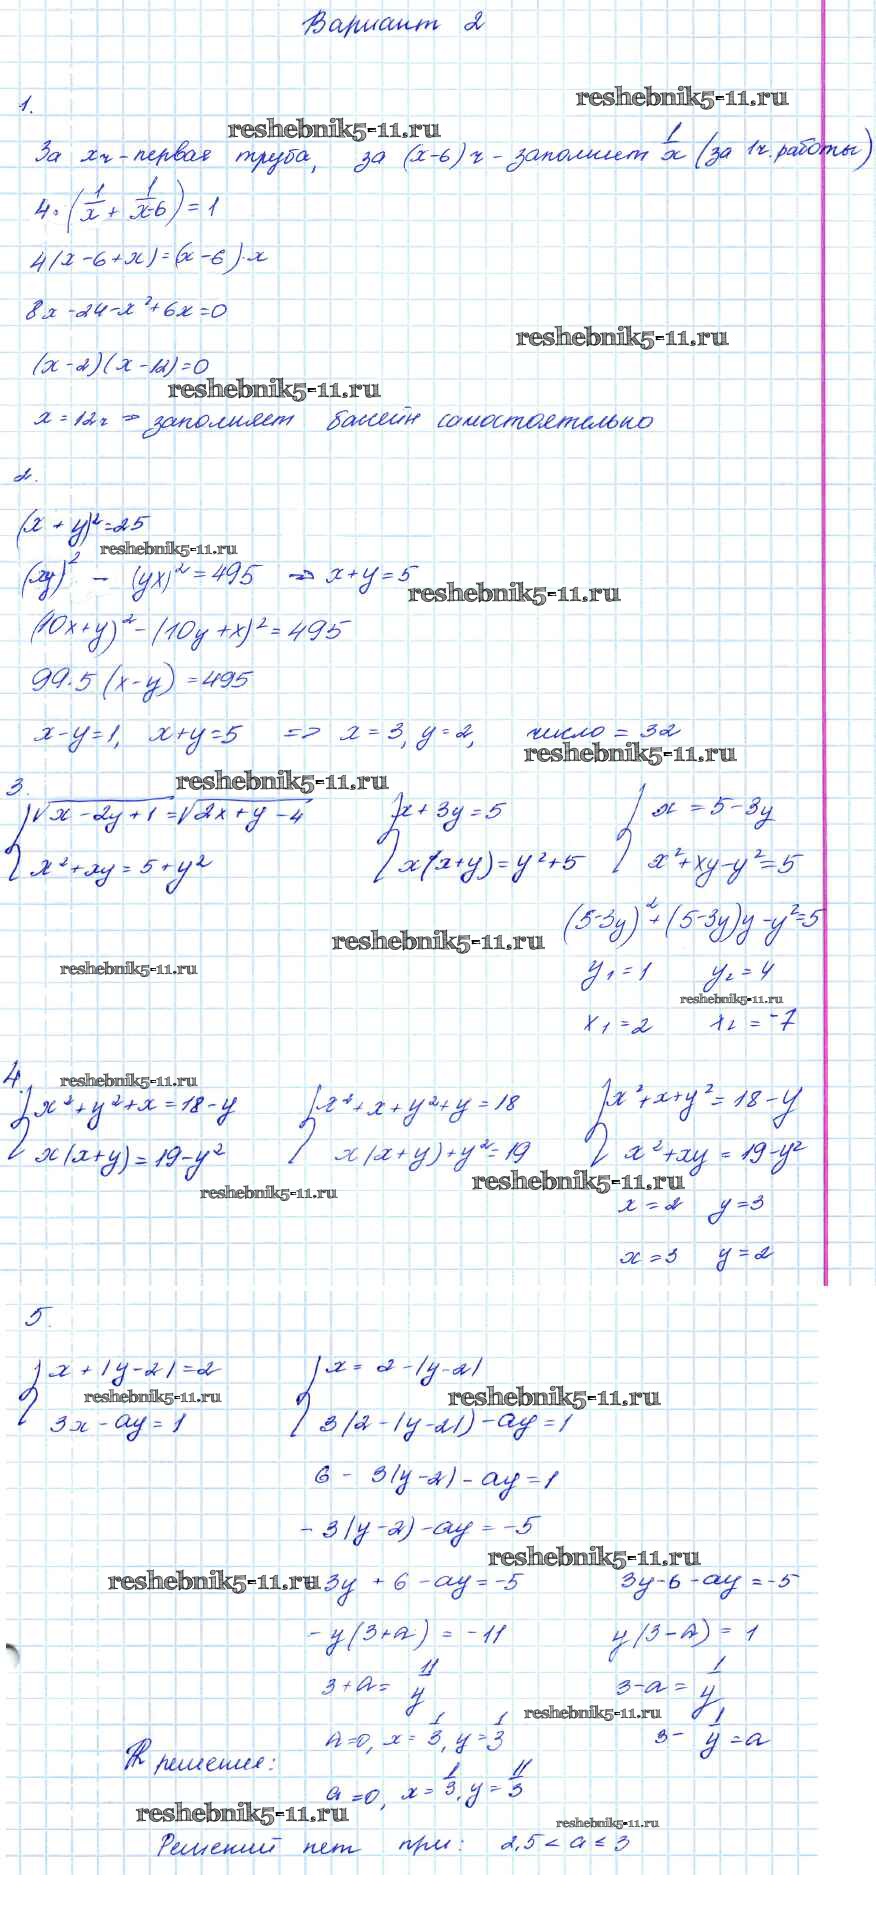 Вариант 2
1.
reshebnik5-11.ru
reshebnik5-11.ru
За x ч - первая труба, за (x-6) ч - заполняет 1/x (за 1ч. работы)
4·(1/x + 1/x-6) = 1
4(x-6+x) = (x-6)·x
8x-24-x²+6x=0
reshebnik5-11.ru
(x-2)(x-12)=0
reshebnik5-11.ru
x=12ч => заполняет бассейн самостоятельно
2.
(x+y)²=25
reshebnik5-11.ru
(xy)² - (yx)² = 495 => x+y=5
reshebnik5-11.ru
(10x+y)² - (10y+x)² = 495
99·5(x-y) = 495
x-y=1, x+y=5 => x=3, y=2, число = 32
reshebnik5-11.ru
3.
reshebnik5-11.ru
{ √x-2y+1 = √2x+y-4 { x+3y=5 { x=5-3y
x²+xy=5+y² x(x+y)=y²+5 x²+xy-y²=5
(5-3y)²+(5-3y)y-y²=5
reshebnik5-11.ru
reshebnik5-11.ru
y₁=1 y₂=4
reshebnik5-11.ru
x₁=2 x₂=-7
4.
reshebnik5-11.ru
{ x²+y²+x=18-y { x²+x+y²+y=18 { x²+x+y²=18-y
x(x+y)=19-y² x(x+y)+y²=19 x²+xy=19-y²
reshebnik5-11.ru
reshebnik5-11.ru
x=2 y=3
x=3 y=2
5.
{ x+|y-2|=2 { x=2-|y-2|
reshebnik5-11.ru
reshebnik5-11.ru
3x-ay=1 3(2-|y-2|)-ay=1
6-3(y-2)-ay=1
-3(y-2)-ay=-5
reshebnik5-11.ru
reshebnik5-11.ru
3y+6-ay=-5 3y-6-ay=-5
-y(3+a)=-11 y(3-a)=1
3+a=11/y 3-a=1/y
reshebnik5-11.ru
a=0, x=1/3, y=1/3 3-1/y=a
решения:
a=0, x=1/3, y=11/3
reshebnik5-11.ru
reshebnik5-11.ru
Решений нет при: 2,5<a≤3